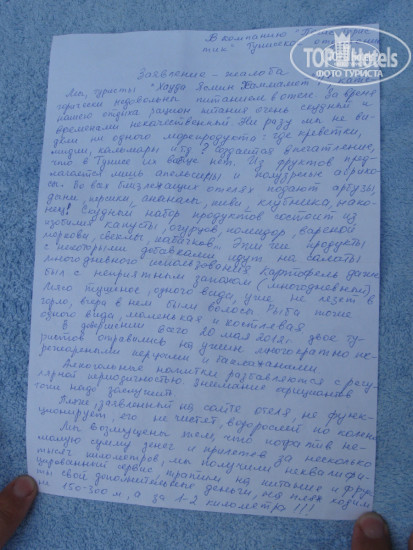 В компанию "
тик" Тунисского
TOPHOTELS
ФОТО ТУРИСТА
Заявление - жалоба
Мы, туристы "Хауда Ясмин Хаммамет", кате-
горически недовольны питанием в отеле. За время
нашего отдыха рацион питания очень скудный и
временами некачественный. Ни разу мы не ви-
дели ни одного морепродукта: где креветки,
мидии, кальмары и т.д.? Создаётся впечатление,
что в Тунисе их вообще нет. Из фруктов пред-
лагаются лишь апельсины и полузрелые абрико-
сы. Во всех близлежащих отелях подают арбузы,
дыни, персики, ананасы, киви, клубнику, нако-
нец! Скудный набор продуктов состоит из
изобилия капусты, огурцов, помидор, вареной
моркови, свеклы, кабачков. Эти же продукты
с некоторыми добавками идут на салаты
многодневного использования. Картофель даже
был с неприятным запахом (многодневный)
Мясо тушеное, одного вида, уже не лезет в
горло, вчера в нем были волосы. Рыба тоже
одного вида, маленькая и костлявая.
В довершении всего 20 мая 2012г. двое ту-
ристов отравились на ужине многократно пе-
режаренными перцами и баклажанами.
Алкогольные напитки разбавляются с регу-
лярной периодичностью. Внимание официантов
надо заслужить.
Пляж, заявленный на сайте отеля, не функ-
ционирует, его не чистят, водорослей по колено
Мы возмущены тем, что потратив не-
малую сумму денег и прилетев за несколько
тысяч километров, мы получили неквалифи-
цированный сервис, тратим на питание и фрук-
ты свои дополнительные деньги, на пляж ходим
не 150-300 м, а за 1-2 километра!!!